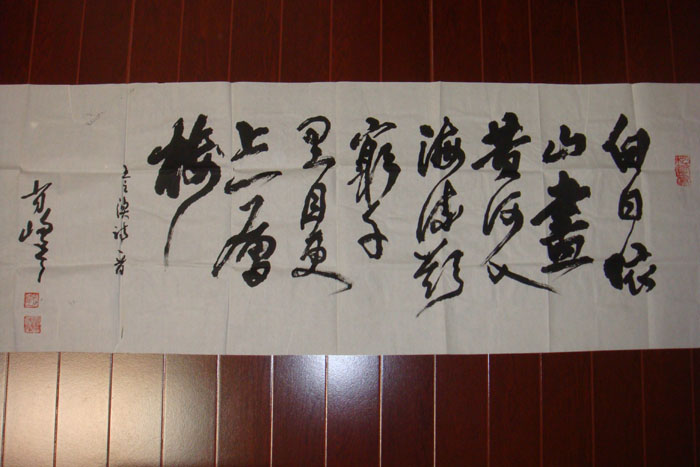 白日依
山盡
黄河入
海流欲
窮千
里目更
上一層
樓
王之渙詩一首